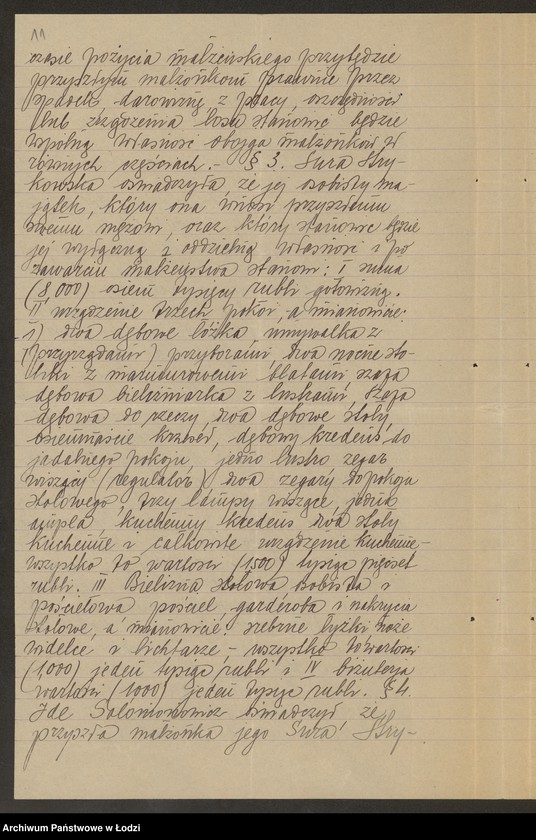 11
czasie pożycia małżeńskiego przybędzie
przyszłym małżonkom prawnie przez
spadek, darowiznę, z pracy, oszczędności
lub zrządzenia losu stanowić będzie
wspólną własność obojga małżonków w
równych częściach. - § 3. Sura Stry-
kowska oświadczyła, że jej osobisty ma-
jątek, który ona wnosi przyszłemu
swemu mężowi, oraz który stanowić będzie
jej wyłączną i oddzielną własność i po
zawarciu małżeństwa stanowi: I suma
(8,000) osiem tysięcy rubli gotowizną.
II urządzenie trzech pokoi, a mianowicie:
1) dwa dębowe łóżka, umywalka z
(przyrządami) przyborami, dwa nocne sto-
liki z marmurowemi blatami szafa
dębowa bieliźniarka z lustrami, szafa
dębowa do rzeczy, dwa dębowe stoły
osiemnaście krzeseł, dębowy kredens do
jadalnego pokoju, jedno lustro zegar
wiszący (regulator) dwa zegary do pokoju
stołowego, trzy lampy wiszące, jedna
ampla, kuchenny kredens dwa stoły
kuchenne i całkowite urządzenie kuchenne -
wszystko to wartości (1500) tysiąc pięćset
rubli. III Bielizna stołowa osobista i
pościelowa pościel, garderoba i nakrycia
stołowe, a mianowicie: srebrne łyżki noże
widelce i lichtarze - wszystko to wartości
(1000) jeden tysiąc rubli i IV biżuterja
wartości (1000) jeden tysiąc rubli. § 4.
Ide Salomonowicz oświadczył, że
przyszła małżonka jego Sura Stry-
Archiwum Państwowe w Łodzi